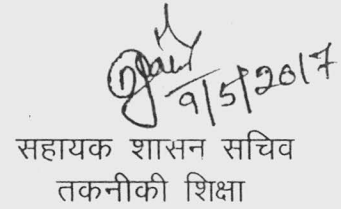 9/5/2017
सहायक शासन सचिव
तकनीकी शिक्षा